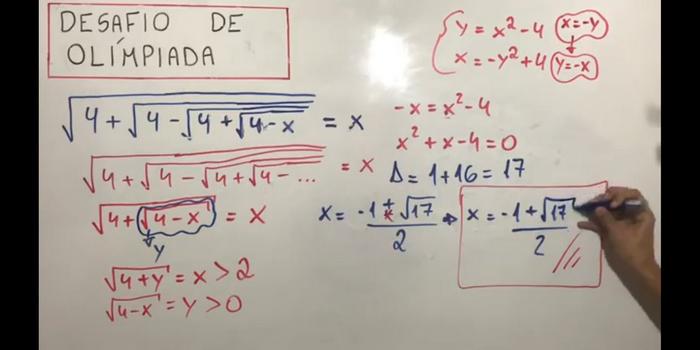 DESAFIO DE
OLÍMPIADA
√(4 + √(4 - √(4 + √(4 - x)))) = x
√(4 + √(4 - √(4 + √(4 - ...)))) = x
√(4 + √(4 - x)) = x
y
√(4 + y) = x > 2
√(4 - x) = y > 0
{ y = x² - 4 x = -y
x = -y² + 4 y = -x
-x = x² - 4
x² + x - 4 = 0
Δ = 1 + 16 = 17
x = (-1 ± √17)/2 → x = (-1 + √17)/2